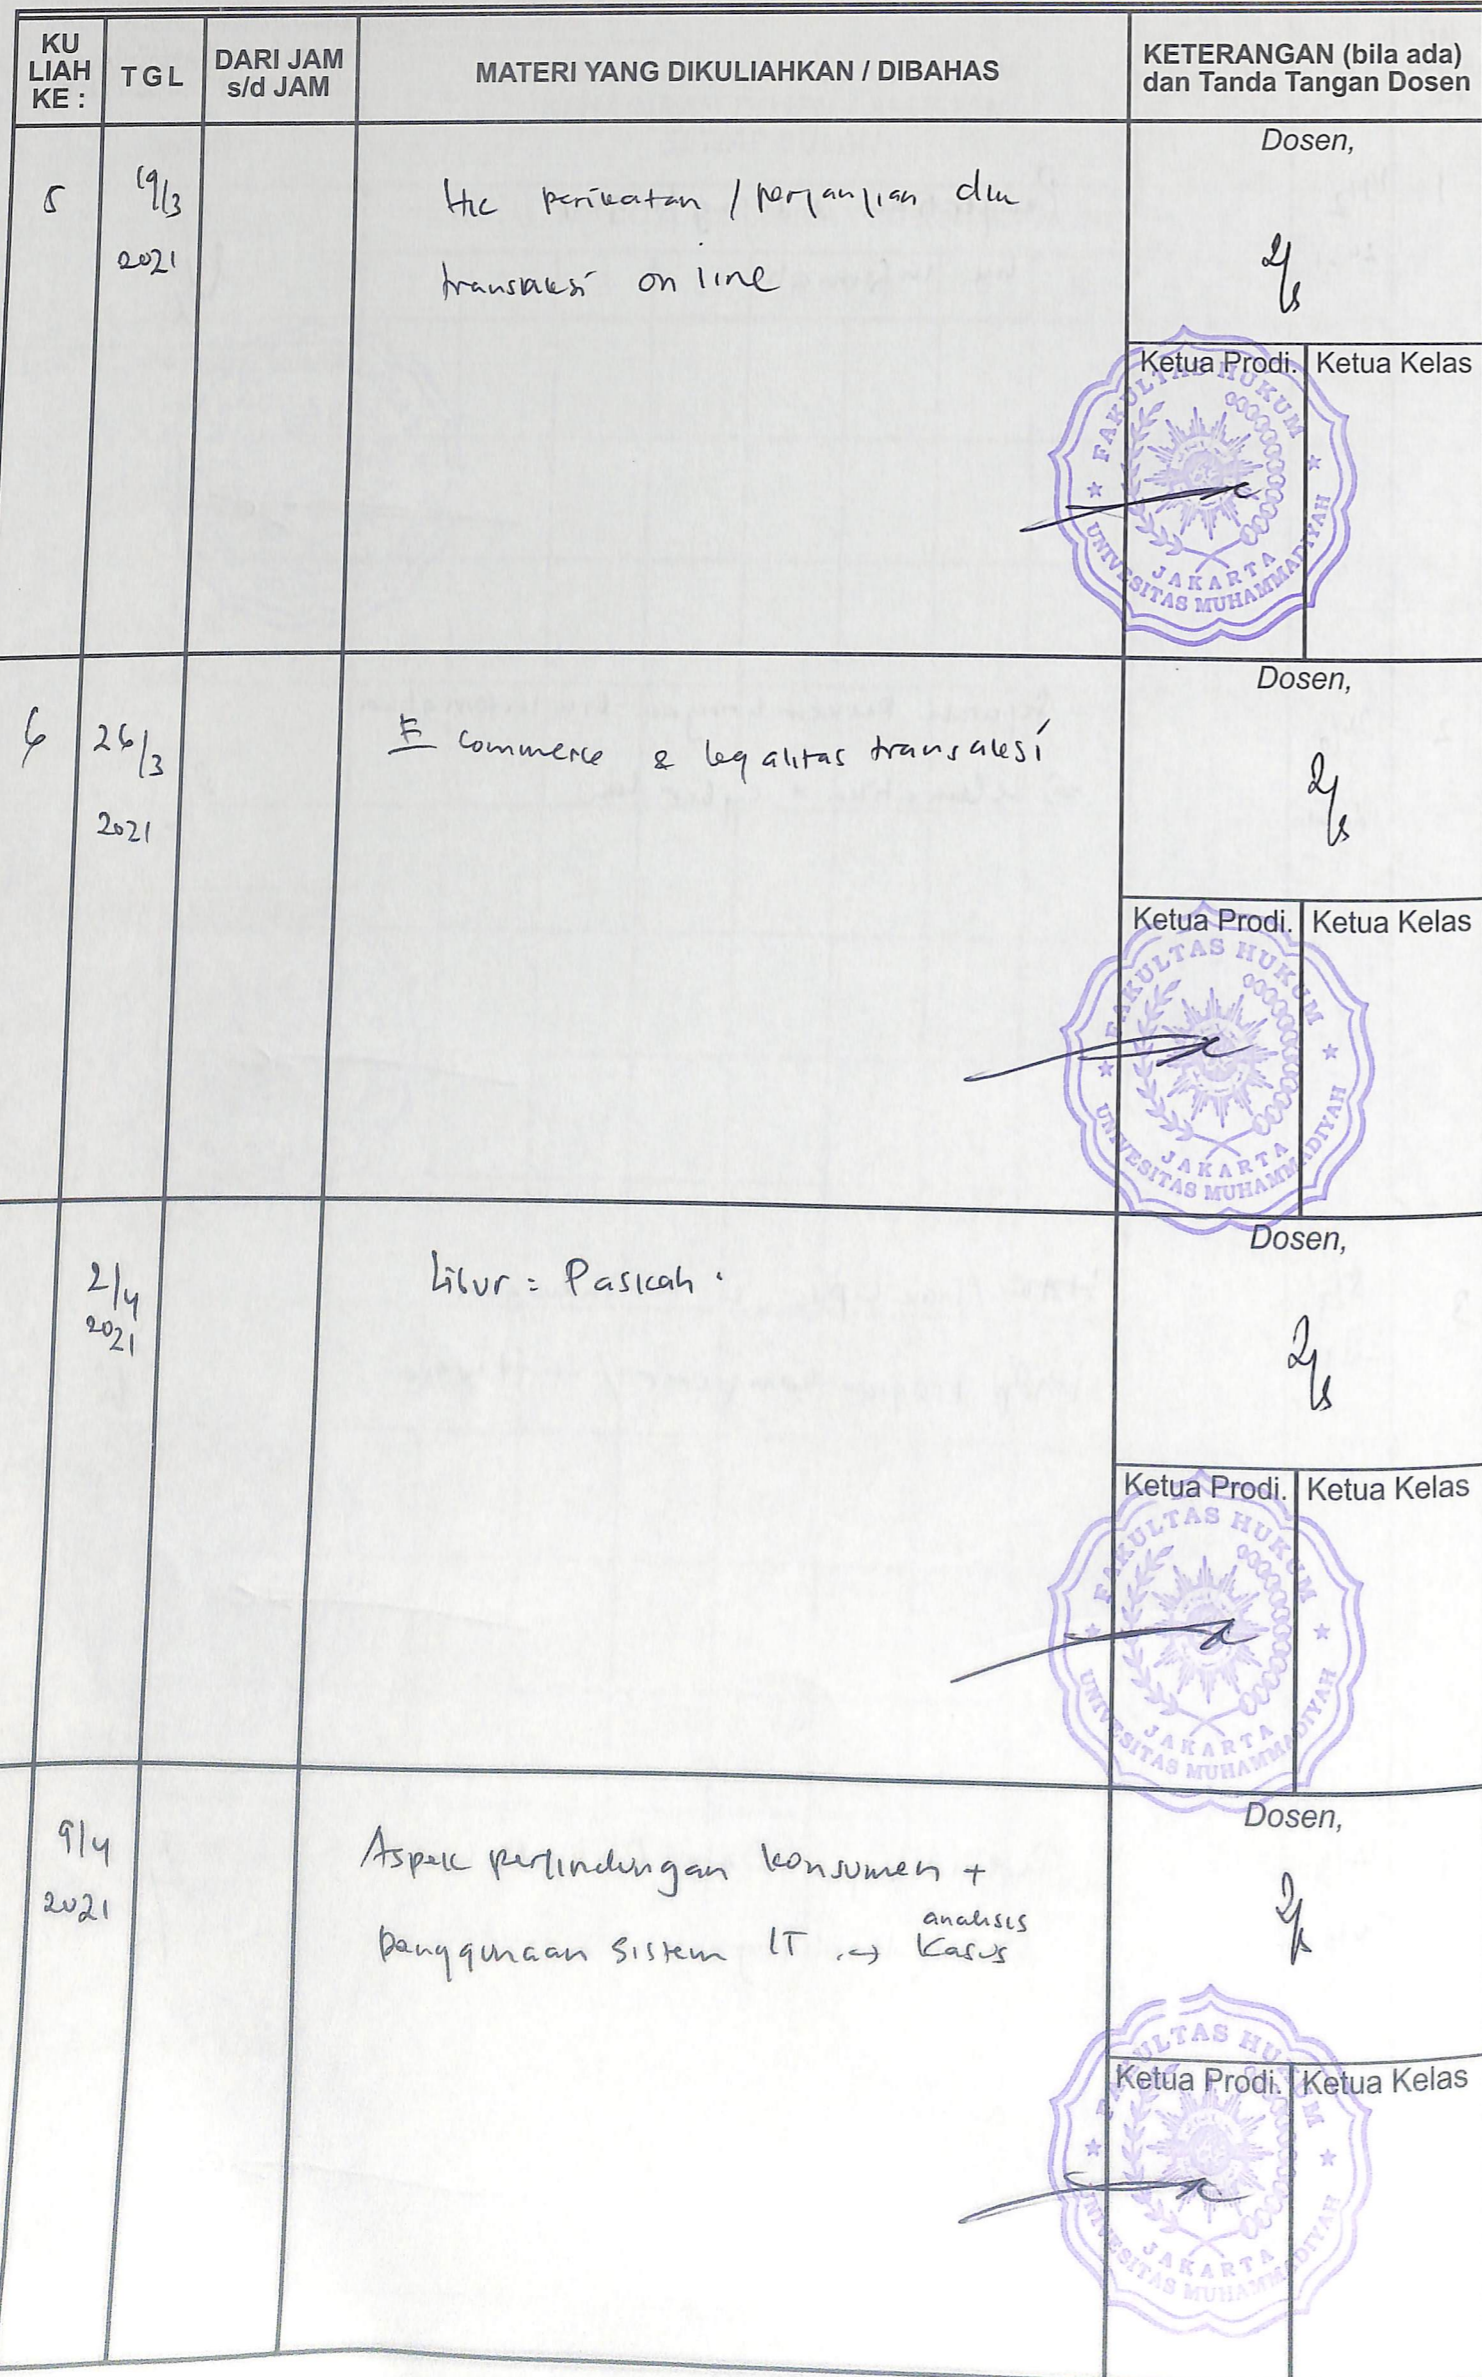 KU
LIAH
KE :
TGL
DARI JAM
s/d JAM
MATERI YANG DIKULIAHKAN / DIBAHAS
KETERANGAN (bila ada)
dan Tanda Tangan Dosen
5
19/3
2021
Hk perikatan / perjanjian dlm
transaksi on line
Dosen,
Ketua Prodi. Ketua Kelas
FAKULTAS HUKUM
JAKARTA
UNIVESITAS MUHAMMADIYAH
6
26/3
2021
E commerce & legalitas transaksi
Dosen,
Ketua Prodi. Ketua Kelas
FAKULTAS HUKUM
JAKARTA
UNIVESITAS MUHAMMADIYAH
2/4
2021
Libur = Paskah .
Dosen,
Ketua Prodi. Ketua Kelas
FAKULTAS HUKUM
JAKARTA
UNIVESITAS MUHAMMADIYAH
9/4
2021
Aspek perlindungan konsumen +
analisis
penggunaan sistem IT .-> Kasus
Dosen,
Ketua Prodi. Ketua Kelas
FAKULTAS HUKUM
JAKARTA
UNIVESITAS MUHAMMADIYAH